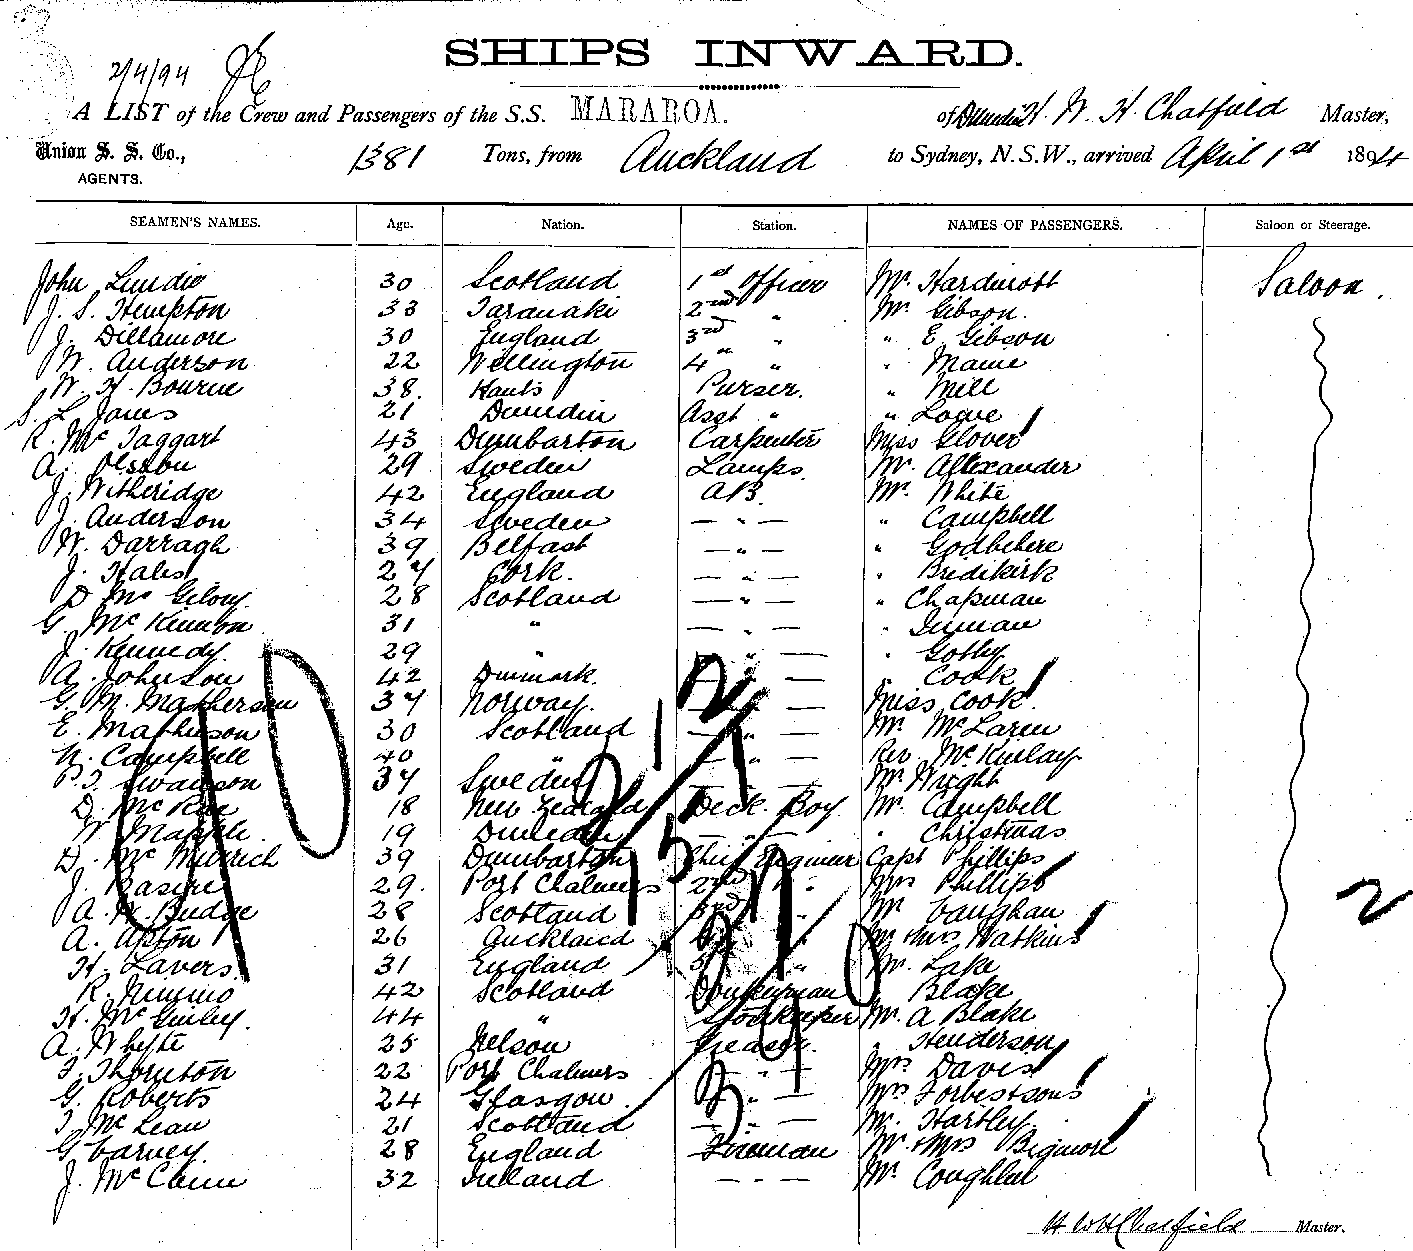 SHIPS INWARD.
2/4/94
A LIST of the Crew and Passengers of the S.S. MARAROA. of Dunedin H. W. H. Chatfield Master,
Union S. S. Co., 1381 Tons, from Auckland to Sydney, N.S.W., arrived April 1st 1894
AGENTS.
SEAMEN'S NAMES. Age. Nation. Station. NAMES OF PASSENGERS. Saloon or Steerage.
John Lundie 30 Scotland 1st Officer Mr. Saloon.
J. S. Hempton 33 Taranaki 2nd " Mr. Gibson.
J. Dillamore 30 England 3rd " " E. Gibson
W. Anderson 22 Wellington 4th " " Maine
W. H. Bourne 38. Hants Purser. " Mill
S. L. James 21 Dunedin Asst " " Lowe
R. McTaggart 43 Dumbarton Carpenter Miss Glover
A. Olsson 29 Sweden Lamps. Mr. Allexander
J. Witheridge 42 England AB. Mr. White
J. Anderson 34 Sweden — " — " Campbell
W. Darragh 39 Belfast — " — " Godbehere
J. Hales 27 Cork. — " — " Bridikirk
D. Mc Gilory. 28 Scotland — " — " Chapman
G. McKinnon 31 " — " — " Inman
J. Kennedy. 29 " — " — "
A. Johnson 42 Denmark. — " — " Cook
G. M. Matherson 37 Norway. — " — Miss Cook
E. Matheson 30 Scotland — " — Mr. McLaren
N. Campbell 40 " — " — Rev McKinlay
P. T. Swanson 37 Sweden — " — Mr. Wright
D. McRae 18 New Zealand Deck Boy Mr. Campbell
W. Mapple. 19 Dunedin — " — " Christmas
D. Mc 39 Dumbarton Chief Engineer Capt Phillips
J. Basire 29. Port Chalmers 2nd " Mrs Phillips
A. W. Budge 28 Scotland 3rd " Mr. Vaughan
A. Apton 26 Auckland 4th " Mr & Mrs Watkins
H. Lavers. 31 England 5th " Mr. Lake
R. Nimmo 42 Scotland Donkeyman " Blake
H. McGinley. 44 " Storekeeper Mr. A Blake
A. Whyte 25 Nelson Greaser. " Henderson
T. Thornton 22 Port Chalmers — " — Mrs Davis
G. Roberts 24 Glasgow. — " — Mrs
T. McLean 21 Scotland — " — Mr. Hartley
G. Varney. 28 England Fireman Mr. & Mrs Bigmore
J. McCann 32 Ireland — " — Mr. Coughlan
H W H Chatfield Master.